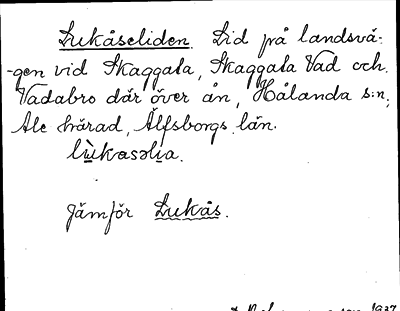 Lukåseliden. Lid på landsvä-
-gen vid Skaggata, Skaggata Vad och
Vadabro där över ån, Hålanda s:n,
Ale härad, Älfsborgs län.
lùkasəlia.
Jämför Lukås.
1937